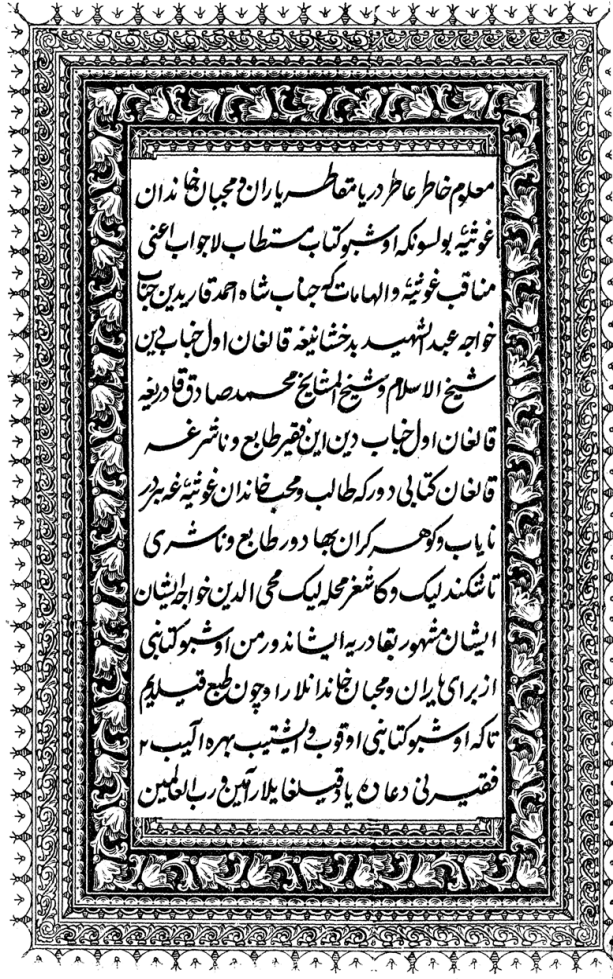 معلوم خاطر عاطر دریا متقاطر یاران و محبان خاندان
غوثیهٔ بولسونکه اوشبو کتاب مستطاب لاجواب اعنی
مناقب غوثیهٔ و الهامات که جناب شاه احمد قاریدین جناب
خواجه عبدالشهید بدخشانیغه قالغان اول جنابدین
شیخ الاسلام و شیخ المشایخ محمد صادق قادریغه
قالغان اول جناب دین این فقیر طابع و ناشرغه
قالغان کتابی دورکه طالب و محب خاندان غوثیهٔ غه بر در
نایاب و کوهر کران بها دور طابع و ناشری
تاشکندلیک و کاشغر محله لیک محی الدین خواجه ایشان
ایشان مشهور بقادریه ایشاندور من اوشبو کتابنی
از برای یاران و محبان خاندانلار اوچون طبع قیلدیم
تاکه اوشبو کتابنی اوقوب و ایشتیب بهره آلیب ۲
فقیرنی دعاده یاد قیلغایلار آمین و رب العالمین